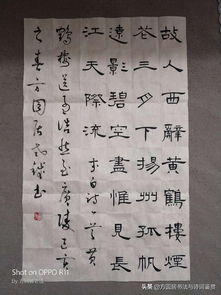 故人西辭黃鶴樓煙
花三月下揚州孤帆
遠影碧空盡惟見長
江天際流 李白詩一首黃
鶴樓送孟浩然至廣陵己亥
之春方圓居
Shot on OPPO R11
头条@方圆居书法与诗词鉴赏